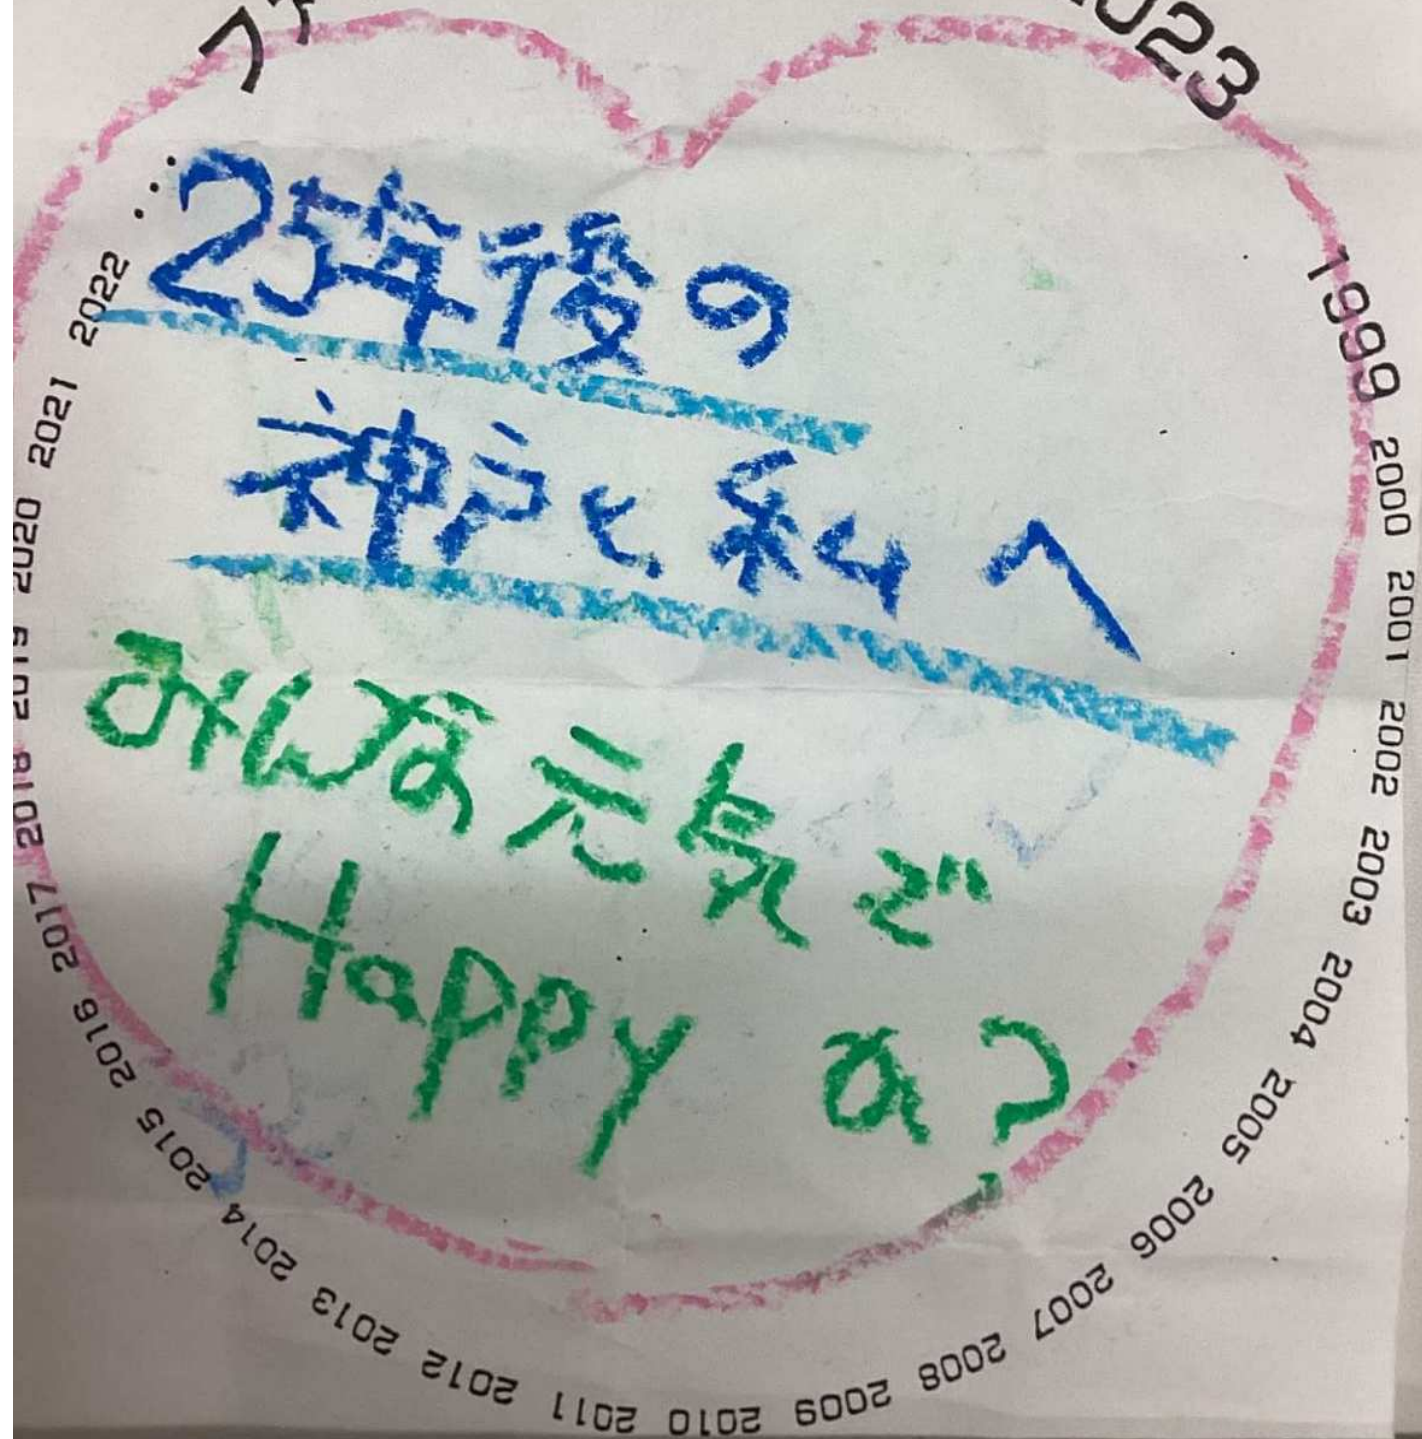 2023
25年後の
神戸と私へ
みんな元気で
Happy な?
1999 2000 2001 2002 2003 2004 2005 2006 2007 2008 2009 2010 2011 2012 2013 2014 2015 2016 2017 2018 2019 2020 2021 2022 ...